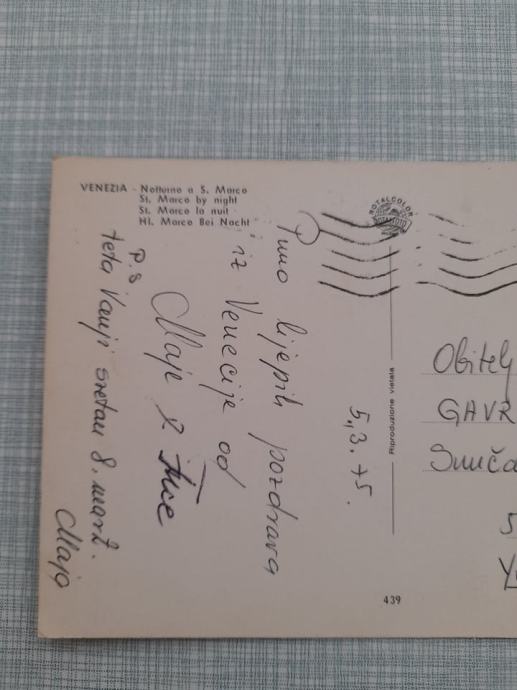 VENEZIA - Notturno a S. Marco
St. Marco by night
St. Marco la nuit
Hl. Marco Bei Nacht
ROTALCOLOR
ROTALFOTO
Puno lijepih pozdrava
iz Venecije od
Maje &
P.S
teta Vanji sretan 8. mart.
Maja
5.3.75.
Riproduzione vietata
439
Obitelj
GAVR
Sunča
5